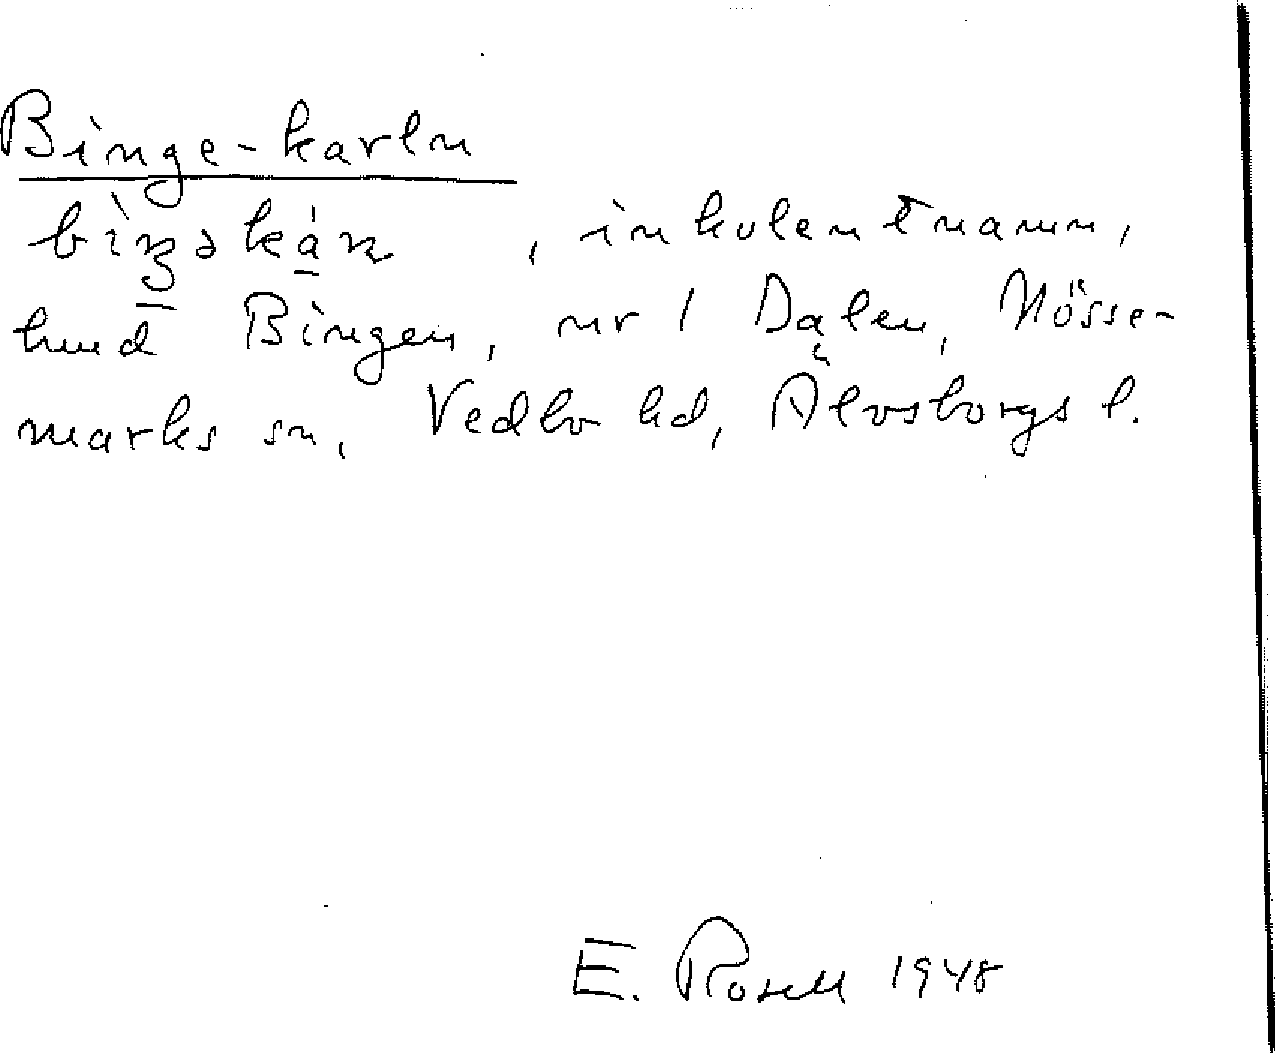 Binge-karln
bìŋəkáɳ, inkolentnamn,
hmd Bingen, nr 1 Dalen, Nösse-
marks sn, Vedbo hd, Älvsborgs l.
E. Rosell 1948